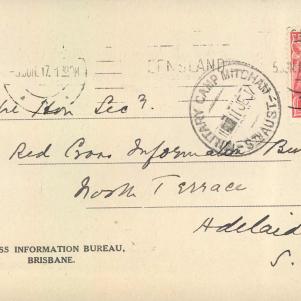 JUL.17.1
ENSLAND
MILITARY CAMP MITCHAM STH AUST
The Hon Secy.
Red Cross Information Bu
North Terrace
Adelaid
S.
SS INFORMATION BUREAU,
BRISBANE.